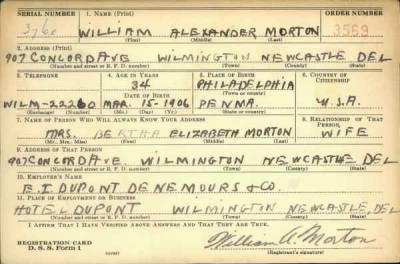 SERIAL NUMBER 1. NAME (Print) ORDER NUMBER
WILLIAM ALEXANDER MORTON 3569
(First) (Middle) (Last)
2. ADDRESS (Print)
907 CONCORD AVE WILMINGTON NEWCASTLE DEL
(Number and street or R. F. D. number) (Town) (County) (State)
3. TELEPHONE 4. AGE IN YEARS 5. PLACE OF BIRTH 6. COUNTRY OF CITIZENSHIP
34 PHILADELPHIA
DATE OF BIRTH (Town or county)
WILM-22260 MAR. 15-1906 PENNA. U.S.A.
(Exchange) (Number) (Mo.) (Day) (Yr.) (State or country)
7. NAME OF PERSON WHO WILL ALWAYS KNOW YOUR ADDRESS 8. RELATIONSHIP OF THAT PERSON
MRS. BERTHA ELIZABETH MORTON WIFE
(Mr., Mrs., Miss) (First) (Middle) (Last)
9. ADDRESS OF THAT PERSON
907 CONCORD AVE. WILMINGTON NEWCASTLE DEL
(Number and street or R. F. D. number) (Town) (County) (State)
10. EMPLOYER'S NAME
E. I. DUPONT DE NEMOURS & CO.
11. PLACE OF EMPLOYMENT OR BUSINESS
HOTEL DUPONT WILMINGTON NEWCASTLE, DEL
(Number and street or R. F. D. number) (Town) (County) (State)
I AFFIRM THAT I HAVE VERIFIED ABOVE ANSWERS AND THAT THEY ARE TRUE.
REGISTRATION CARD
D. S. S. Form 1
William A. Morton
(Registrant's signature)